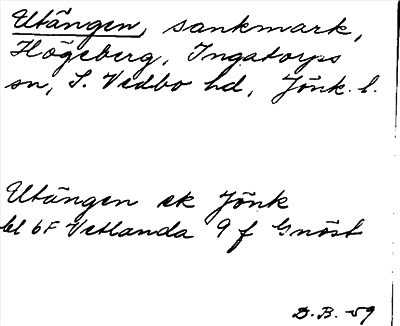 Utängen, sankmark,
Högeberg, Ingatorps
sn, S. Vedbo hd, Jönk. l.
Utängen ek Jönk
bl 6F Vetlanda 9 f Gnöst
D.B. -59